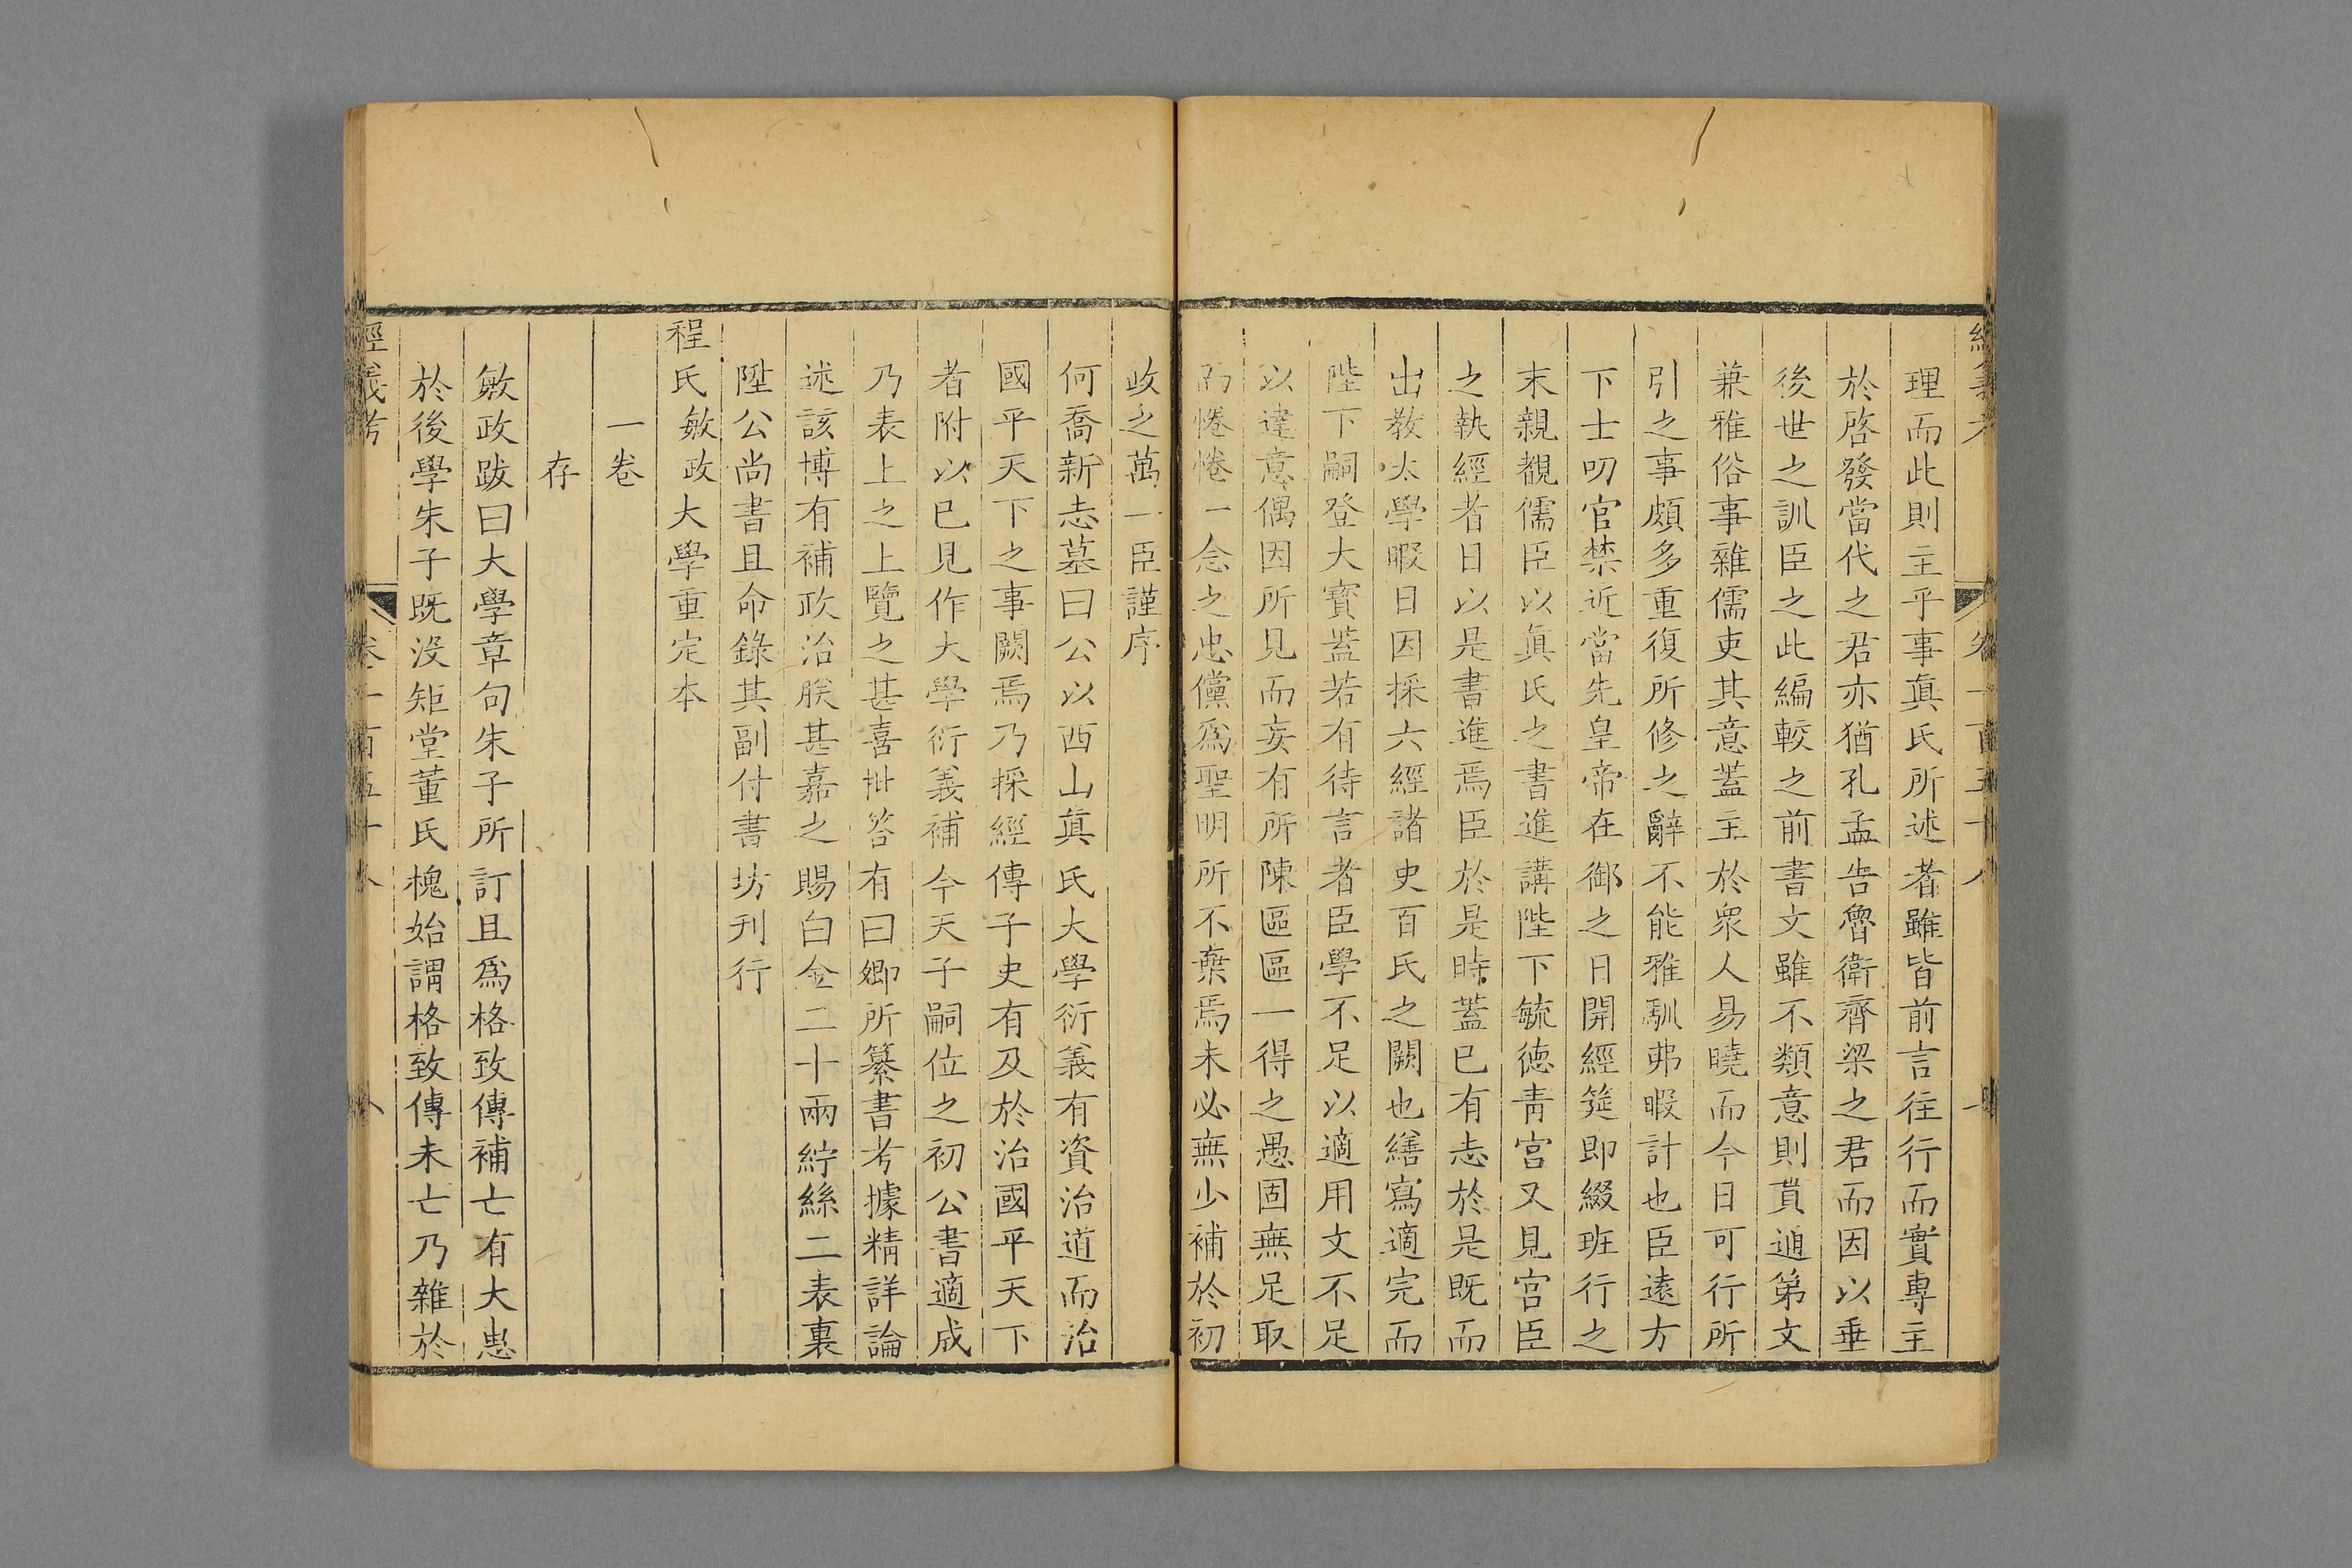 理而此則主乎事眞氏所述者雖皆前言往行而實專主
於啓發當代之君亦猶孔孟告魯衛齊梁之君而因以垂
後世之訓臣之此編較之前書文雖不類意則貫通第文
兼雅俗事雜儒吏其意蓋主於衆人易曉而今日可行所
引之事頗多重復所修之辭不能雅馴弗暇計也臣遠方
下士叨官禁近當先皇帝在御之日開經筵即綴班行之
末親覩儒臣以眞氏之書進講陛下毓徳青宮又見宮臣
之執經者日以是書進焉臣於是時蓋已有志於是既而
出教太學暇日因採六經諸史百氏之闕也繕寫適完而
陛下嗣登大寶蓋若有待言者臣學不足以適用文不足
以達意偶因所見而妄有所陳區區一得之愚固無足取
而惓惓一念之忠儻爲聖明所不棄焉未必無少補於初
政之萬一臣謹序
何喬新志墓曰公以西山眞氏大學衍義有資治道而治
國平天下之事闕焉乃採經傳子史有及於治國平天下
者附以已見作大學衍義補今天子嗣位之初公書適成
乃表上之上覽之甚喜批答有曰卿所纂書考據精詳論
述該博有補政治朕甚嘉之賜白金二十兩紵絲二表裏
陞公尚書且命錄其副付書坊刊行
程氏敏政大學重定本
一卷
存
敏政跋曰大學章句朱子所訂且爲格致傳補亡有大惠
於後學朱子既沒矩堂董氏槐始謂格致傳未亡乃雜於
經義考 卷一百五十八 八